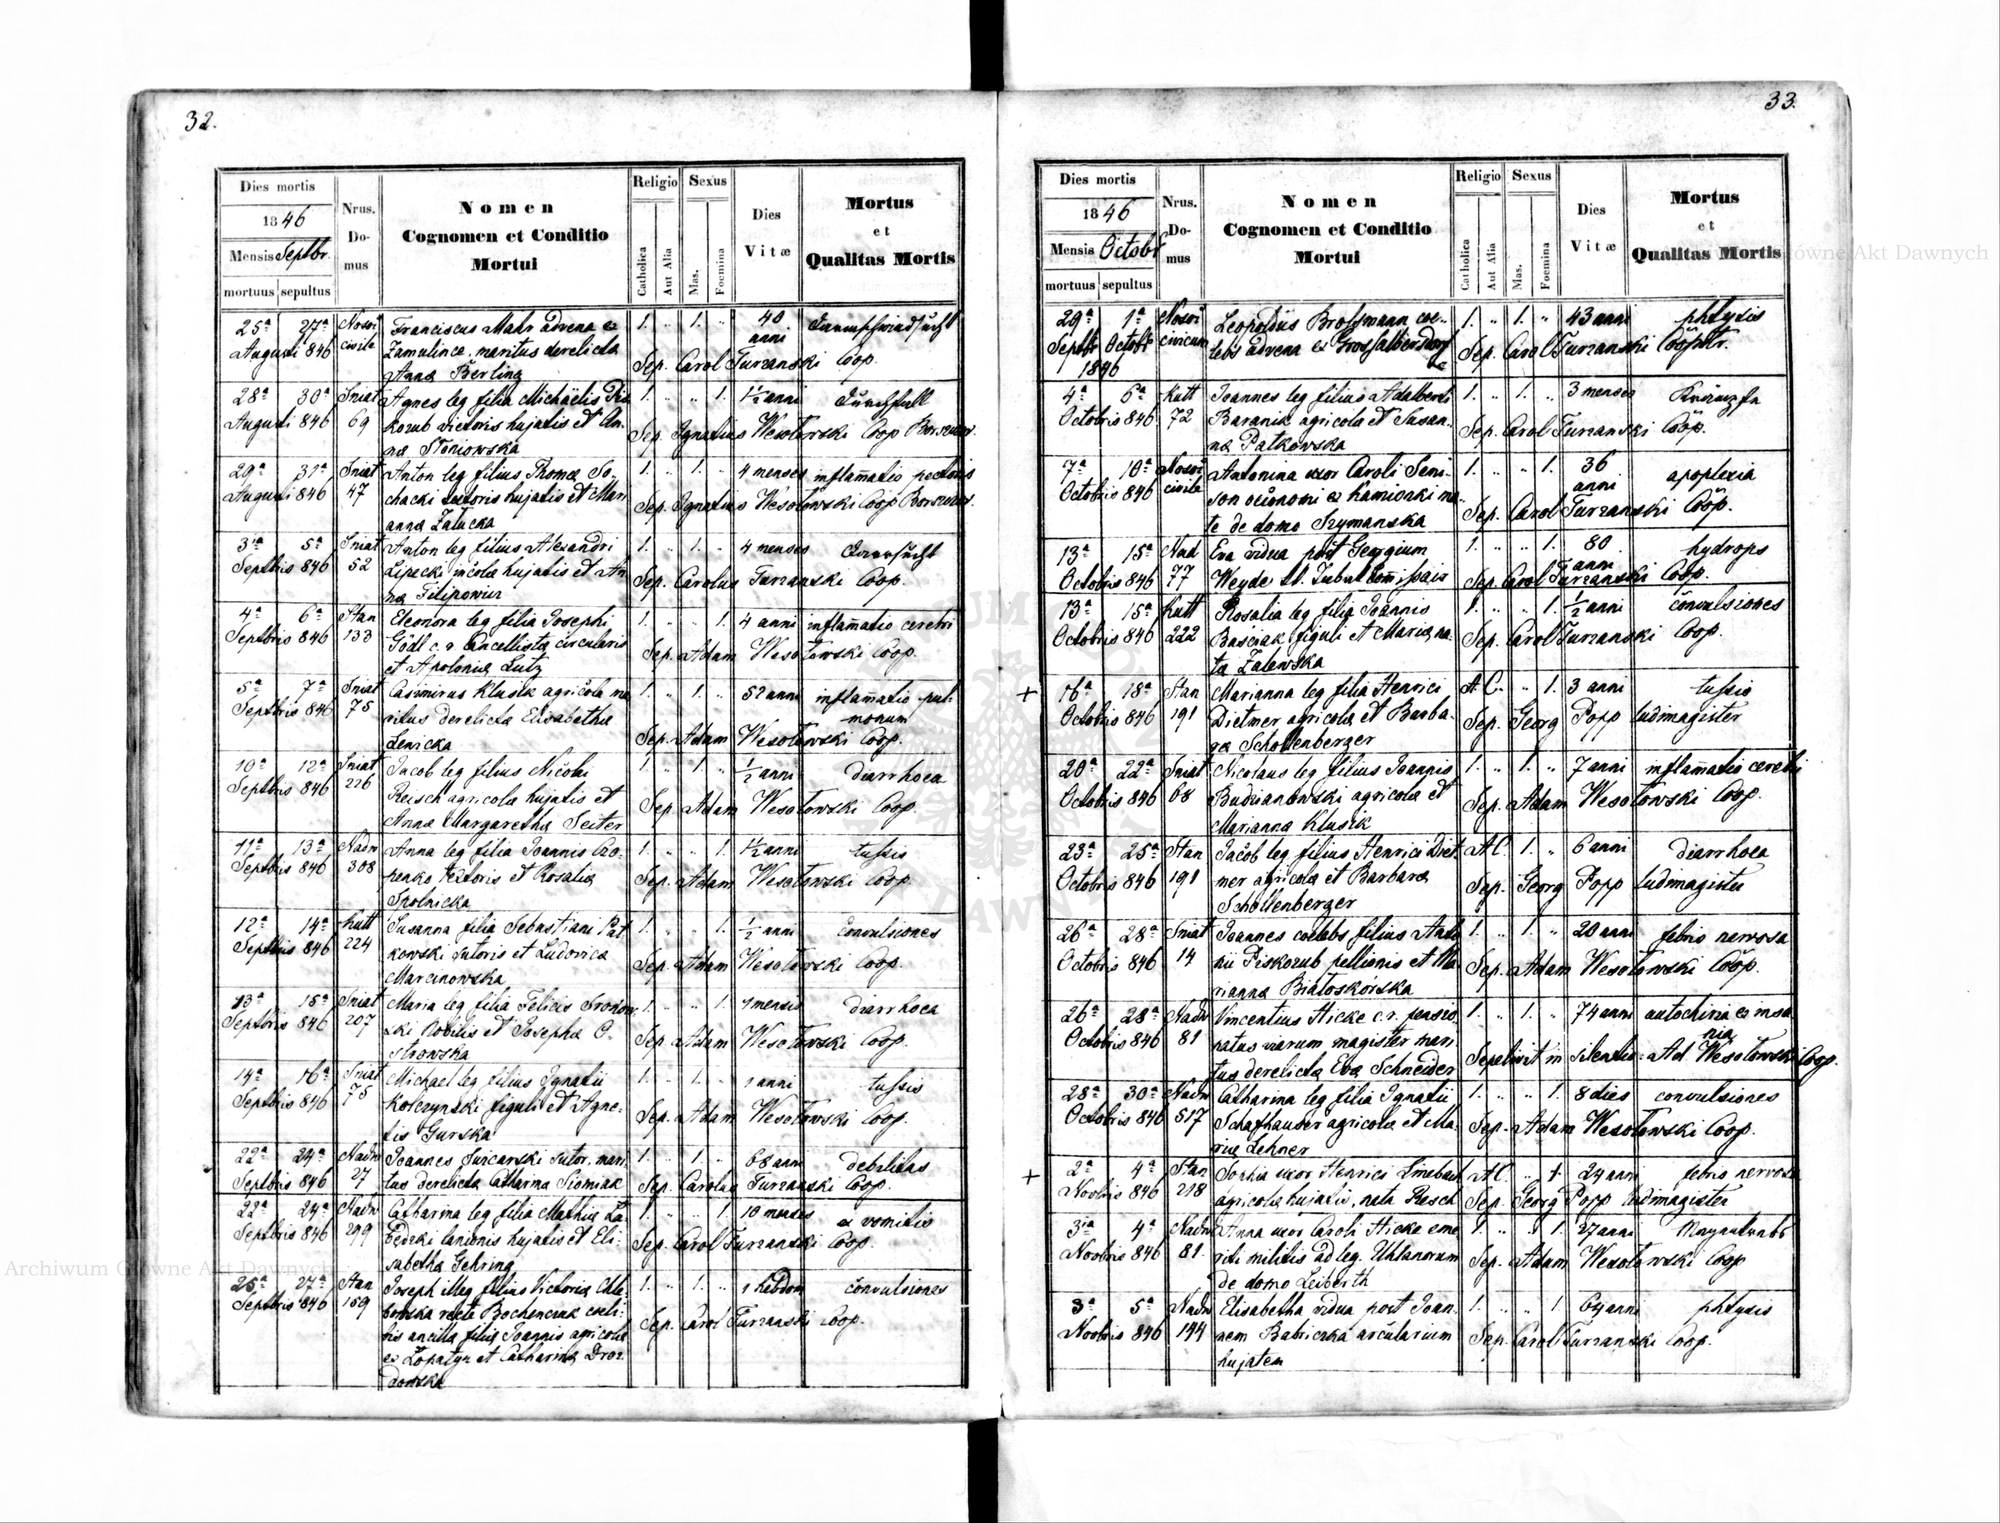 32.
Dies mortis
1846
Mensis Septbr.
mortuus sepultus
Nrus.
Do-
mus
Nomen
Cognomen et Conditio
Mortui
Religio
Catholica
Aut Alia
Sexus
Mas.
Foemina
Dies
Vitæ
Mortus
et
Qualitas Mortis
25ª 27ª Franciscus Mahr advena ex 1. 1. 40
Augusti 846 civile maritus derelicta anni
Anna Berling Sep. Carol Turzanski Coop.
28ª 30ª Sniat Agnes leg filia Michaëlis Pis 1. 1. 1½ anni Durchfall
Augusti 846 69 kozub hujatis et An-
na Sep. Ignatius Wesołowski Coop
29ª 31ª Sniat Anton leg filius Thomæ So- 1. 1. 4 menses inflam̄atio pectoris
Augusti 846 47 chacki hujatis et Mari
anna Załucka Sep. Ignatius Wesołowski Coop
3ia 5ª Sniat Anton leg filius Alexandri 1. 1. 4 menses
Septbris 846 52 Lipecki incola hujatis et An
na Filipowicz Sep. Carolus Turzanski Coop.
4ª 6ª Stan Eleonora leg filia Josephi 1. 1. 4 anni inflam̄atio cerebri
Septbris 846 133 Gödl c. r. Cancellista circularis
et Apolonia Lutz Sep. Adam Wesołowski Coop.
5ª 7ª Sniat Casimirus Klusik agricola ma 1. 1. 52 anni inflam̄atio pul-
Septbris 846 75 ritus derelicta Elisabetha monum
Lenicka Sep. Adam Wesołowski Coop.
10ª 12ª Sniat Jacob leg filius Nicolai 1. 1. ½ anni diarrhoea
Septbris 846 226 Reisch agricola hujatis et
Anna Margaretha Seiter Sep. Adam Wesołowski Coop.
11ª 13ª Nadw Anna leg filia Joannis 1. 1. 1½ anni tussis
Septbris 846 308 textoris et Rosalia
Sep. Adam Wesołowski Coop.
12ª 14ª Kutt Susanna filia Sebastiani Pat 1. 1. ½ anni convulsiones
Septbris 846 224 kowski sutoris et Ludovica
Marcinowska Sep. Adam Wesołowski Coop.
13ª 15ª Sniat Maria leg filia Felicis 1. 1. 1 mensis diarrhoea
Septbris 846 207 ski Nobilis et Josepha O-
strowska Sep. Adam Wesołowski Coop.
14ª 16ª Sniat Michael leg filius Ignatii 1. 1. 1 anni tussis
Septbris 846 75 Kołczynski figuli et Agne-
tis Gurska Sep. Adam Wesołowski Coop.
22ª 24ª Nadw Joannes sutor, mari 1. 1. 68 anni debilitas
Septbris 846 27 tus derelicta Catharina Sep. Carolus Turzanski Coop.
22ª 24ª Nadw Catharina leg filia Mathiæ Ła- 1. 1. 10 menses ex vomitis
Septbris 846 299 będzki lanionis hujatis et Eli-
sabetha Gehring Sep. Carol Turzanski Coop.
25ª 27ª Stan Joseph illeg filius Victoria Chle- 1. 1. 1 hebdom convulsiones
Septbris 846 159 bowska recte Bochenczuk coeli-
bis ancilla filia Joannis agricola
ex Łopatyn et Catharina Droz-
dowska Sep. Carol Turzanski Coop.
33.
Dies mortis
1846
Mensis Octobr
mortuus sepultus
Nrus.
Do-
mus
Nomen
Cognomen et Conditio
Mortui
Religio
Catholica
Aut Alia
Sexus
Mas.
Foemina
Dies
Vitæ
Mortus
et
Qualitas Mortis
29ª 1ª Leopoldus Brossmann coe- 1. 1. 43 anni phtysis
Septbr Octobr civicum lebs advena ex
1846 Sep. Carol Turzanski Cooptr.
4ª 6ª Kutt Joannes leg filius Adalberti 1. 1. 3 menses
Octobris 846 72 Baranik agricola et Susan-
na Patkowska Sep. Carol Turzanski Coop.
7ª 10ª Antonina uxor Caroli Seni- 1. 1. 36 apoplexia
Octobris 846 civile son oeconomi ex Kamionki ma- anni
te de domo Szymanska Sep. Carol Turzanski Coop.
13ª 15ª Nad Eva vidua post Georgium 1. 1. 80 hydrops
Octobris 846 77 Weyde anni
Sep. Carol Turzanski Coop.
13ª 15ª Kutt Rosalia leg filia Joannis 1. 1. ½ anni convulsiones
Octobris 846 222 Baściak figuli et Maria na-
ta Zalewska Sep. Carol Turzanski Coop.
+ 16ª 18ª Stan Marianna leg filia Henrici A. C. 1. 3 anni tussis
Octobris 846 191 Dietmer agricola et Barba-
ra Schollenberger Sep. Georg Popp ludimagister
20ª 22ª Sniat Nicolaus leg filius Joannis 1. 1. 7 anni inflam̄atio cerebri
Octobris 846 68 Budzianowski agricola et
Marianna Klusik Sep. Adam Wesołowski Coop.
23ª 25ª Stan Jacob leg filius Henrici Diet A. C. 1. 6 anni diarrhoea
Octobris 846 191 mer agricola et Barbara
Schollenberger Sep. Georg Popp ludimagister
26ª 28ª Sniat Joannes coelebs filius Anto 1. 1. 20 anni febris nervosa
Octobris 846 14 nii Piskozub pellionis et Ma-
rianna Białoskórska Sep. Adam Wesołowski Coop.
26ª 28ª Nadw Vincentius Hicke c. r. pensio- 1. 1. 74 anni autochiria ex insa
Octobris 846 81 natus viarum magister mari- nia
tus derelicta Eva Schneider Sepelivit in silentio Ad Wesołowski Coop.
28ª 30ª Nadw Catharina leg filia Ignatii 1. 1. 8 dies convulsiones
Octobris 846 517 Schafhauser agricola et Ma-
ria Lehner Sep. Adam Wesołowski Coop.
+ 2ª 4ª Stan Sophia uxor Henrici Linebach A. C. 1 24 anni febris nervosa
Novbris 846 218 agricola hujatis, nata Resch Sep. Georg Popp ludimagister
3ia 4ª Nadw Anna uxor Caroli Hicke eme- 1. 1. 27 anni
Novbris 846 81. riti militis ad leg. Uhlanorum
de domo Leiberth Sep. Adam Wesołowski Coop
3ª 5ª Nadw Elisabetha vidua post Joan- 1. 1. 64 anni phtysis
Novbris 846 144 nem Babiczka arcularium
hujatem Sep. Carol Turzanski Coop.
Archiwum Główne Akt Dawnych